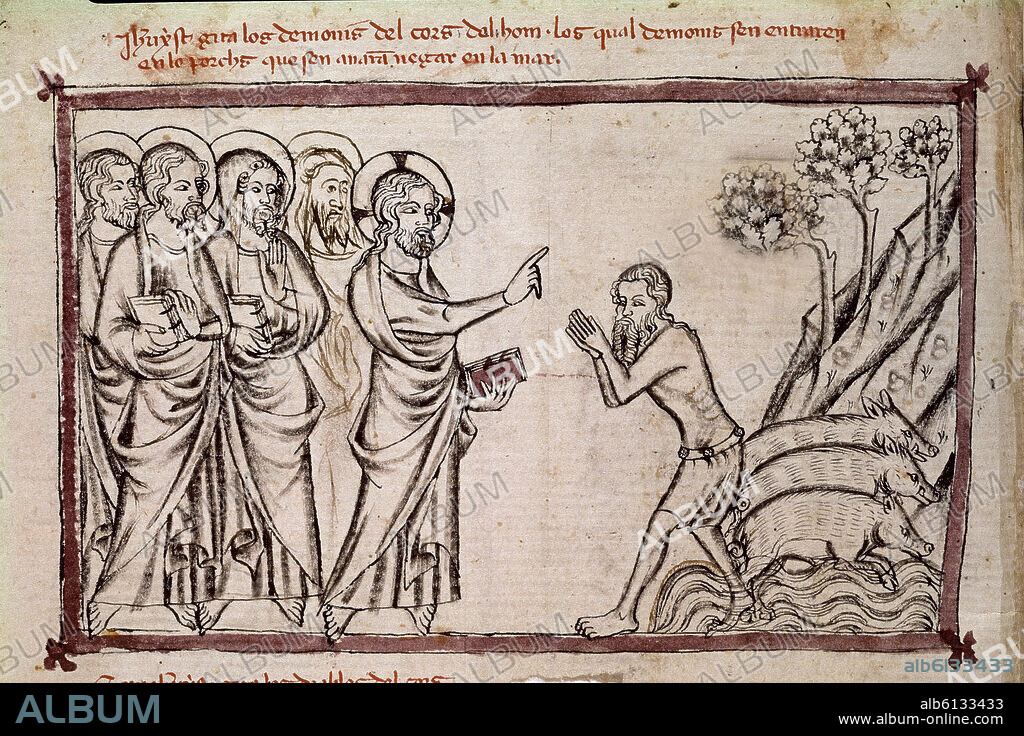 Jhũxst gita los demonis del cors del hom · los qual demonis sen entraren
en le porchs que sen anarã negar en la mar.
ALBUM
alb6133433
ALBUM
alb6133433
www.album-online.com